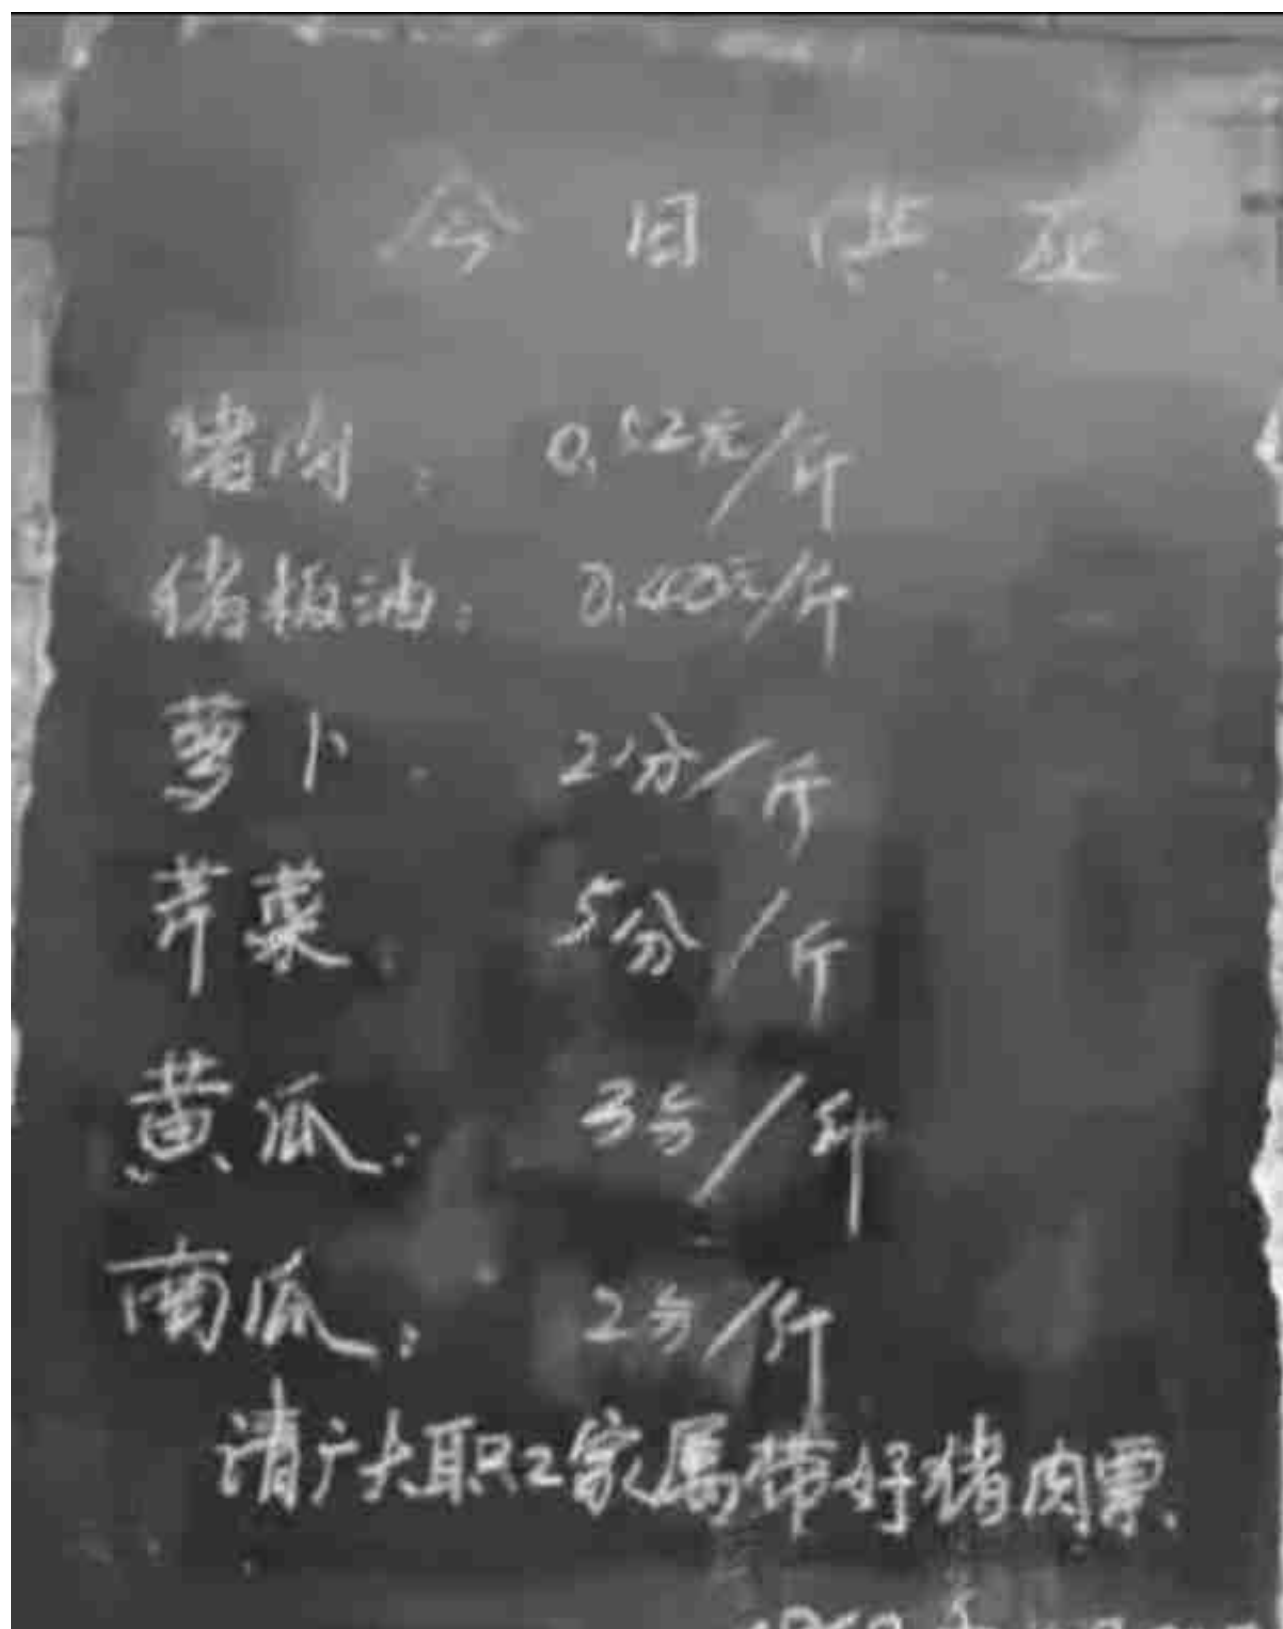 今日供应
猪肉：0.52元/斤
猪板油：0.40元/斤
萝卜：2分/斤
芹菜：5分/斤
黄瓜：3分/斤
南瓜：2分/斤
请广大职工家属带好猪肉票.